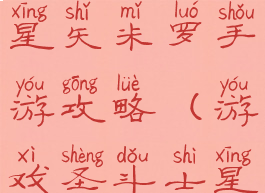 xīng shǐ mǐ luó shǒu
星矢米罗手
yóu gōng lüè yóu
游攻略（游
xì shèng dǒu shì xīng
戏圣斗士星